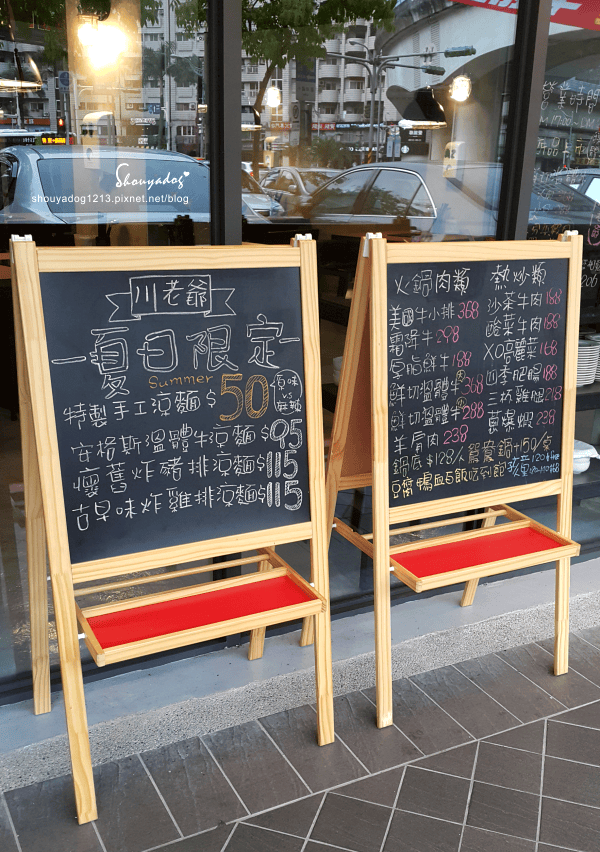 Shouyadog
shouyadog1213.pixnet.net/blog
川老爺
夏日限定
Summer
特製手工涼麵 $50 原味 vs 麻辣
安格斯溫體牛涼麵 $95
懷舊炸豬排涼麵 $115
古早味炸雞排涼麵 $115
火鍋肉類
美國牛小排 368
霜降牛 298
原脂鮮牛 188
鮮切溫體牛 368
鮮切溫體牛 288
羊肩肉 238
鍋底 $128/人 鴛鴦鍋+150/桌
豆腐鴨血与飯吃到飽
熱炒類
沙茶牛肉 188
酸菜牛肉 188
XO高麗菜 168
四季肥腸 188
三杯雞腿 218
蔥爆蝦 238